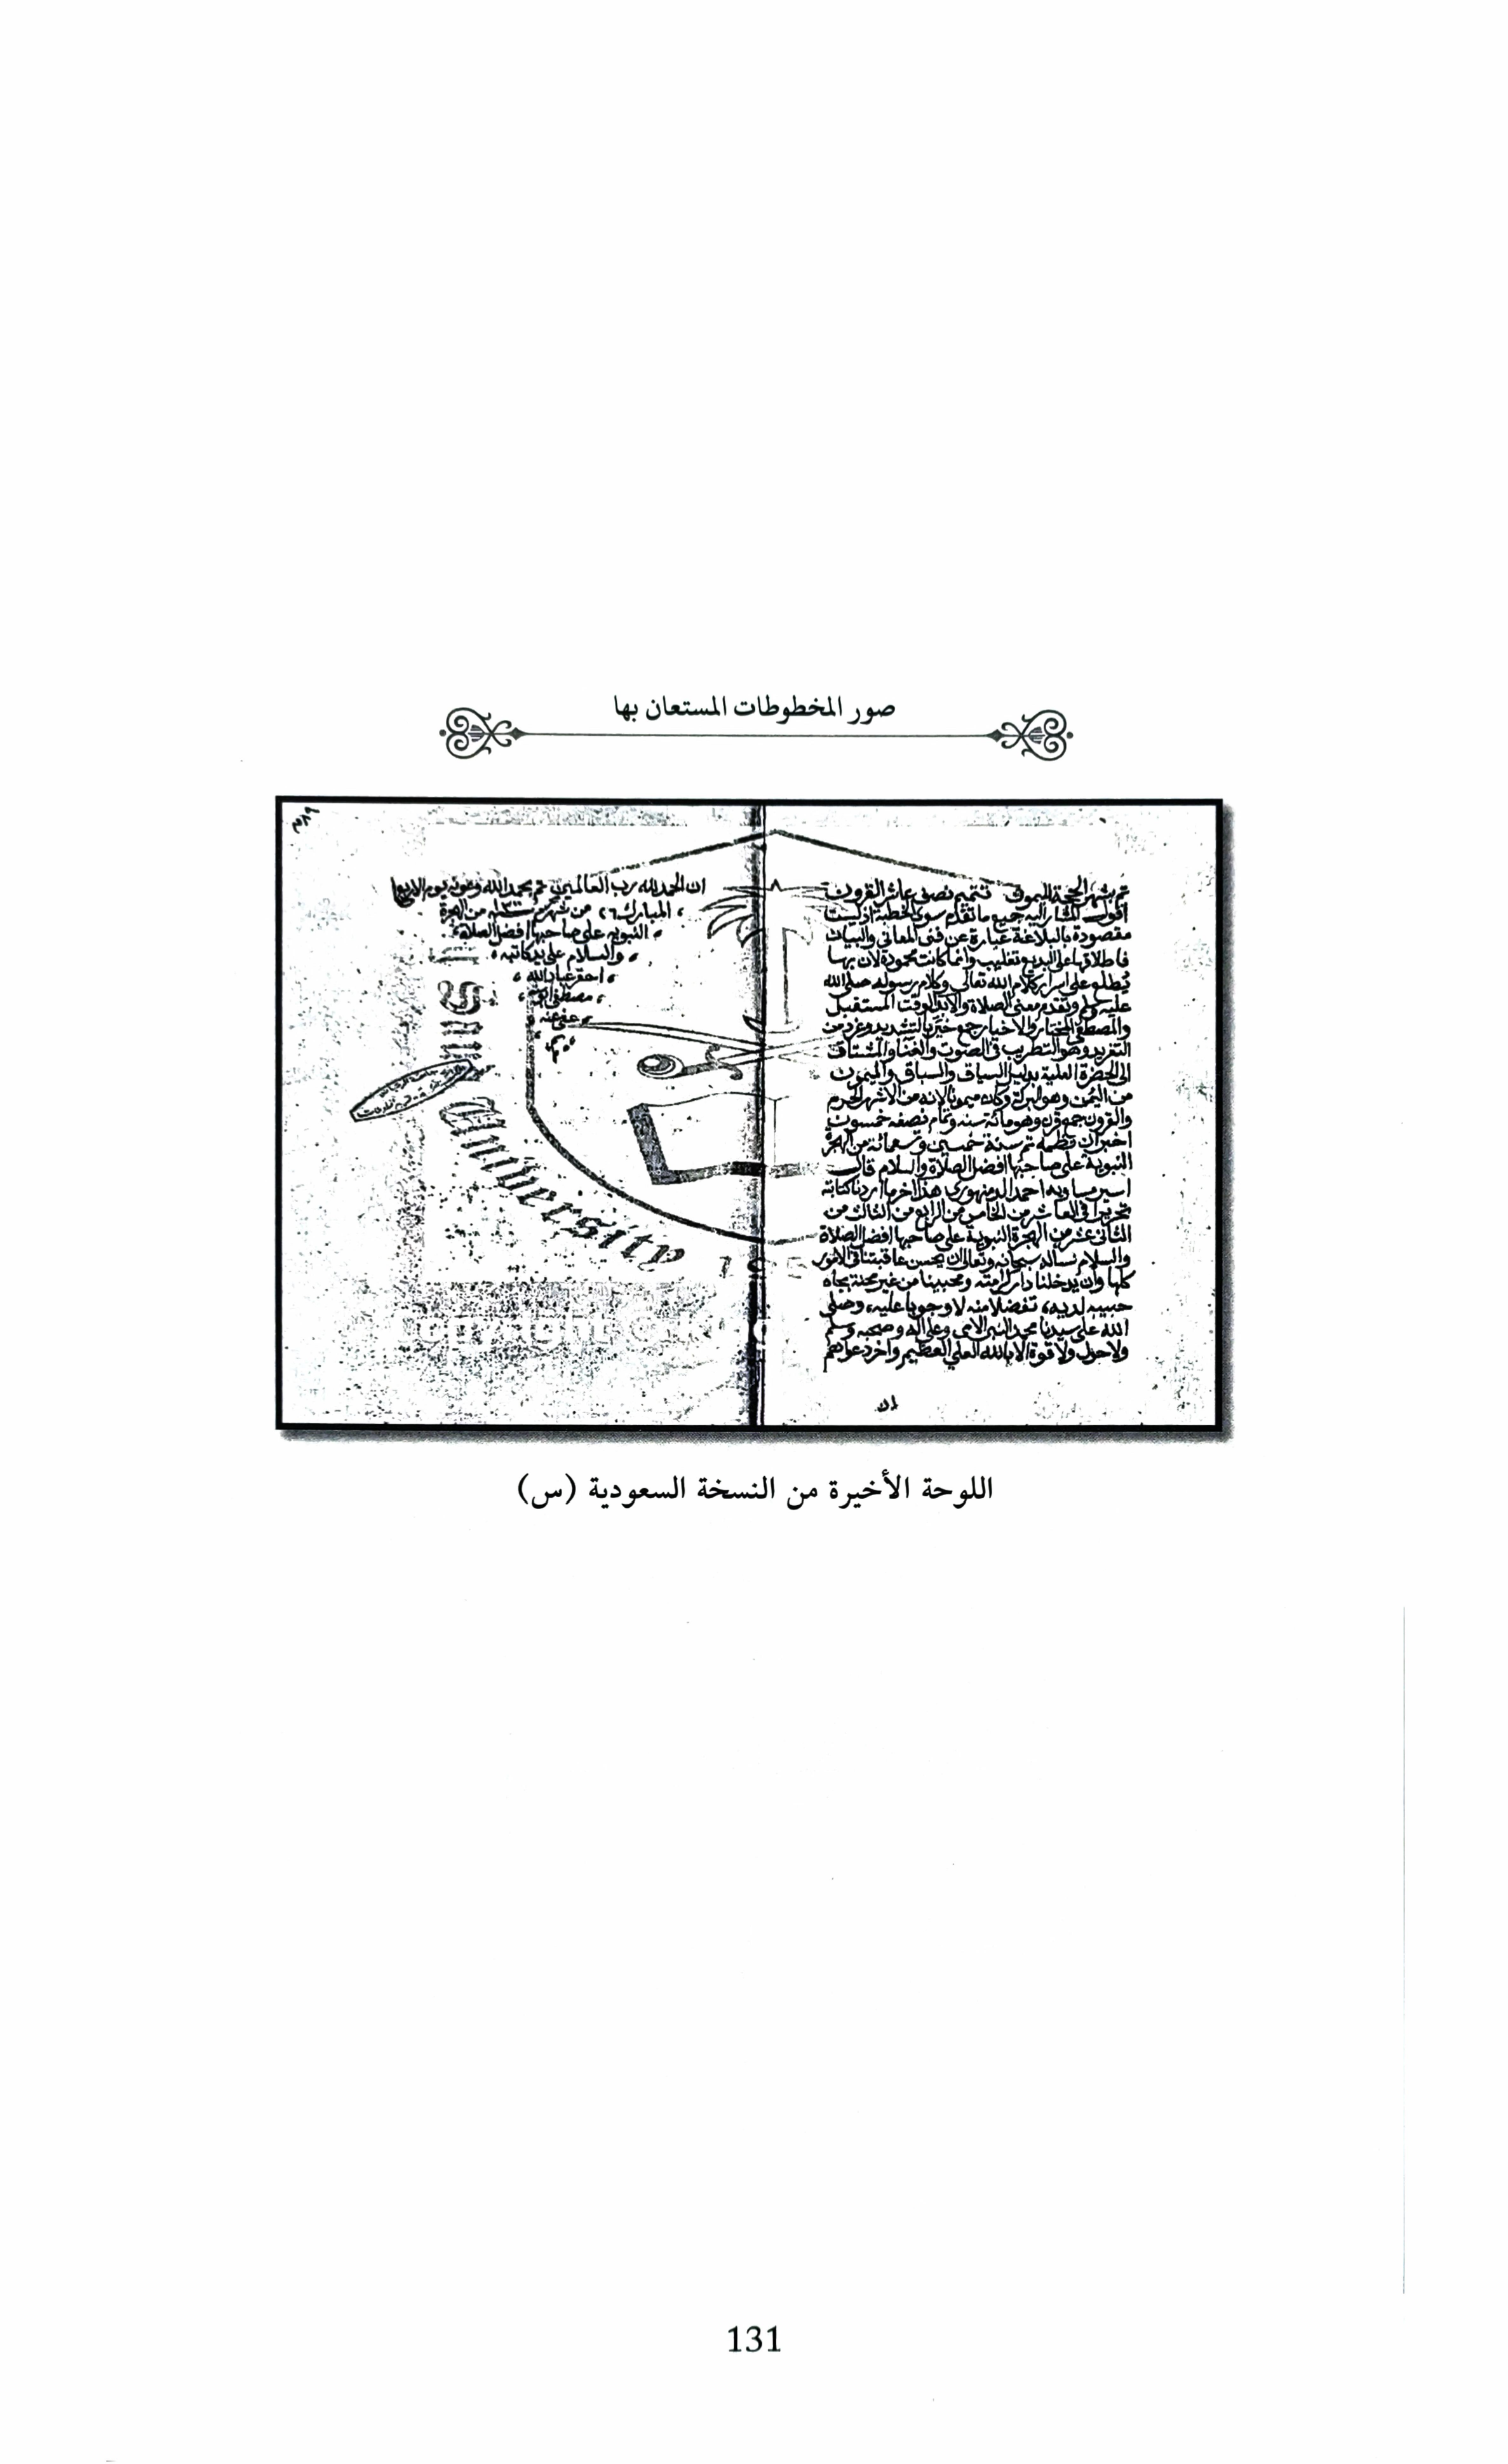 صور المخطوطات المستعان بها
تم بشهر الحجة الميمون تتميم نصف عاشر القرون
اقول المشار اليه جميع ما تقدم سوى الخطبة اذ ليست
مقصودة بالبلاغة عبارة عن فنى المعانى والبيان
فاطلاقها على البديع تغليب وانما كانت محمودة لان بها
يطلع على اسرار كلام الله تعالى وكلام رسوله صلى الله
عليه وسلم وتقدم معنى الصلاة والابد الوقت المستقبل
والمصطفى المختار والاخيار جمع خير بالتشديد وغرد من
التغريد وهو التطريب فى الصوت والغنا والمشتاق
الى الحضرة العلية يريد السياق والسباق والميمون
من اليمن وهو البركة وكان ميمونا لانه من الاشهر الحرم
والقرون جمع قرن وهو مائة سنه وتمام نصفه خمسون
اخبر ان نظمه تم سنة خمسين وتسعمائة من الهجرة
النبوية على صاحبها افضل الصلاة والسلام قال
اسير مساويه احمد الدمنهورى هذا اخر ما اردنا كتابته
تحريرا فى العاشر من الخامس من الرابع من الثالث من
الثانى عشر من الهجرة النبوية على صاحبها افضل الصلاة
والسلام نساله سبحانه وتعالى ان يحسن عاقبتنا فى الامور
كلها وان يدخلنا دار كرامته ومحبينا من غير محنة بجاه
حبيبه لديه، تفضلا منه لا وجوبا عليه، وصلى
الله على سيدنا محمد النبى الامى وعلى اله وصحبه وسلم
ولا حول ولا قوة الا بالله العلى العظيم واخر دعواهم
ان
ان الحمد لله رب العالمين تم بحمد الله وعونه يوم الاربعا
المبارك ٢٦ من شهر من الهجرة
النبويه على صاحبها افضل الصلاة
والسلام على يد كاتبه
احقر عباد الله
مصطفى
عفى عنه
University
اللوحة الأخيرة من النسخة السعودية (س)
131